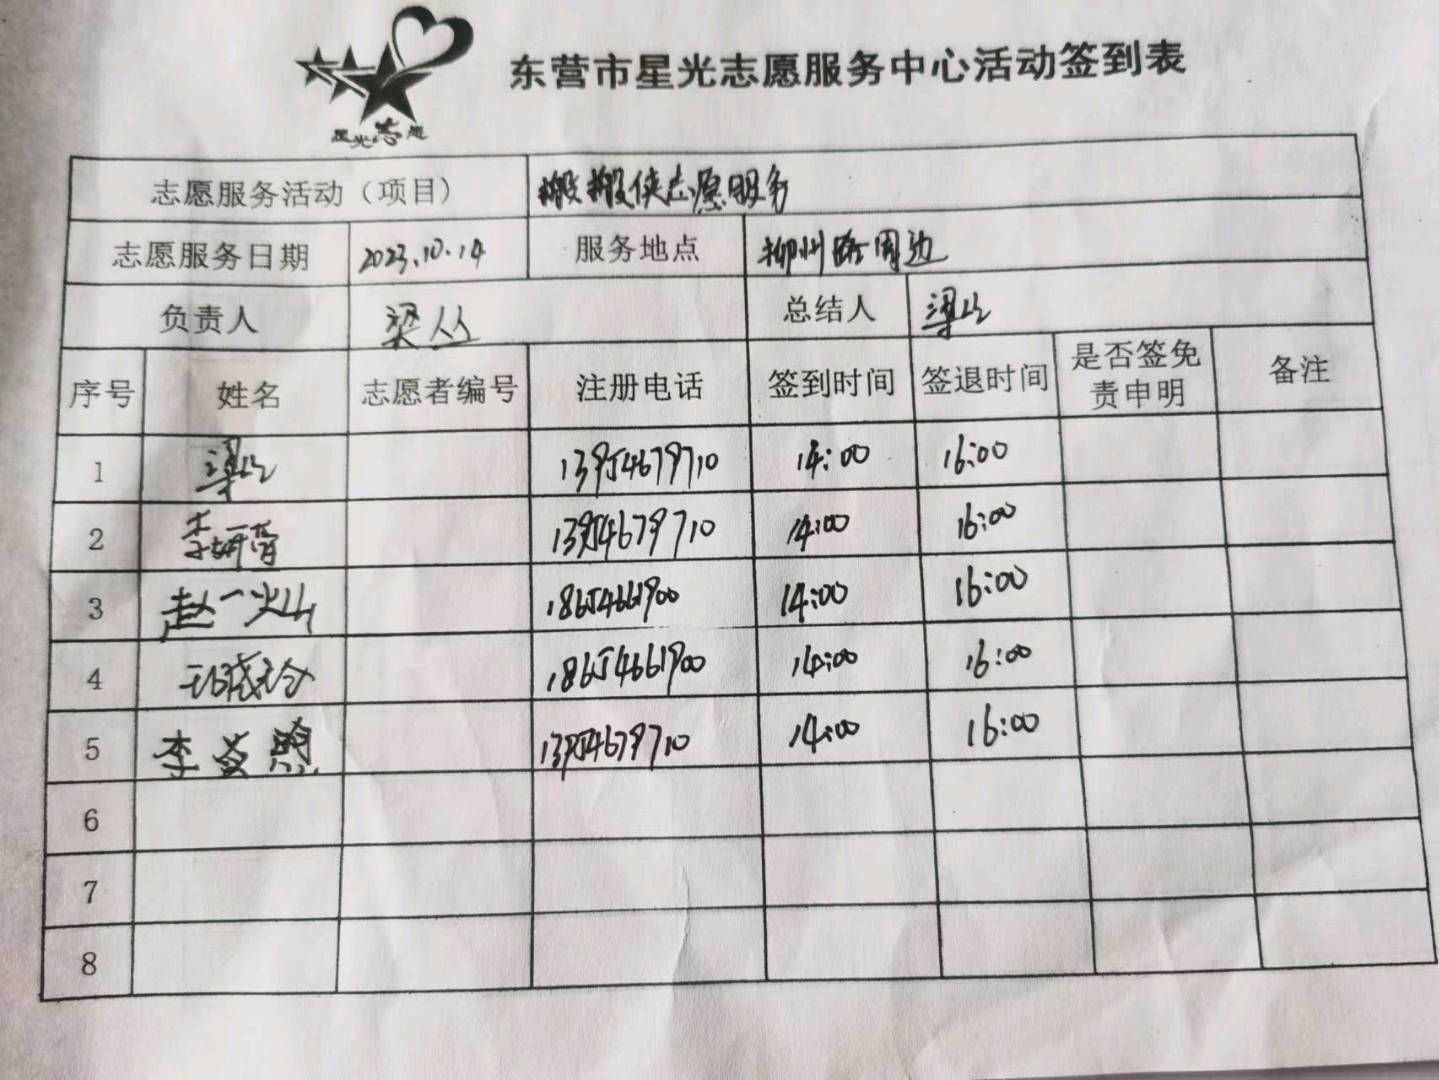 星光志愿
东营市星光志愿服务中心活动签到表
志愿服务活动（项目） 搬搬侠志愿服务
志愿服务日期 2023.10.14 服务地点 柳州路周边
负责人 梁丛 总结人 梁丛
序号 姓名 志愿者编号 注册电话 签到时间 签退时间 是否签免责申明 备注
1 梁丛 13954679710 14:00 16:00
2 李妍 13954679710 14:00 16:00
3 赵一 18654661900 14:00 16:00
4 18654661900 14:00 16:00
5 李 13954679710 14:00 16:00
6
7
8